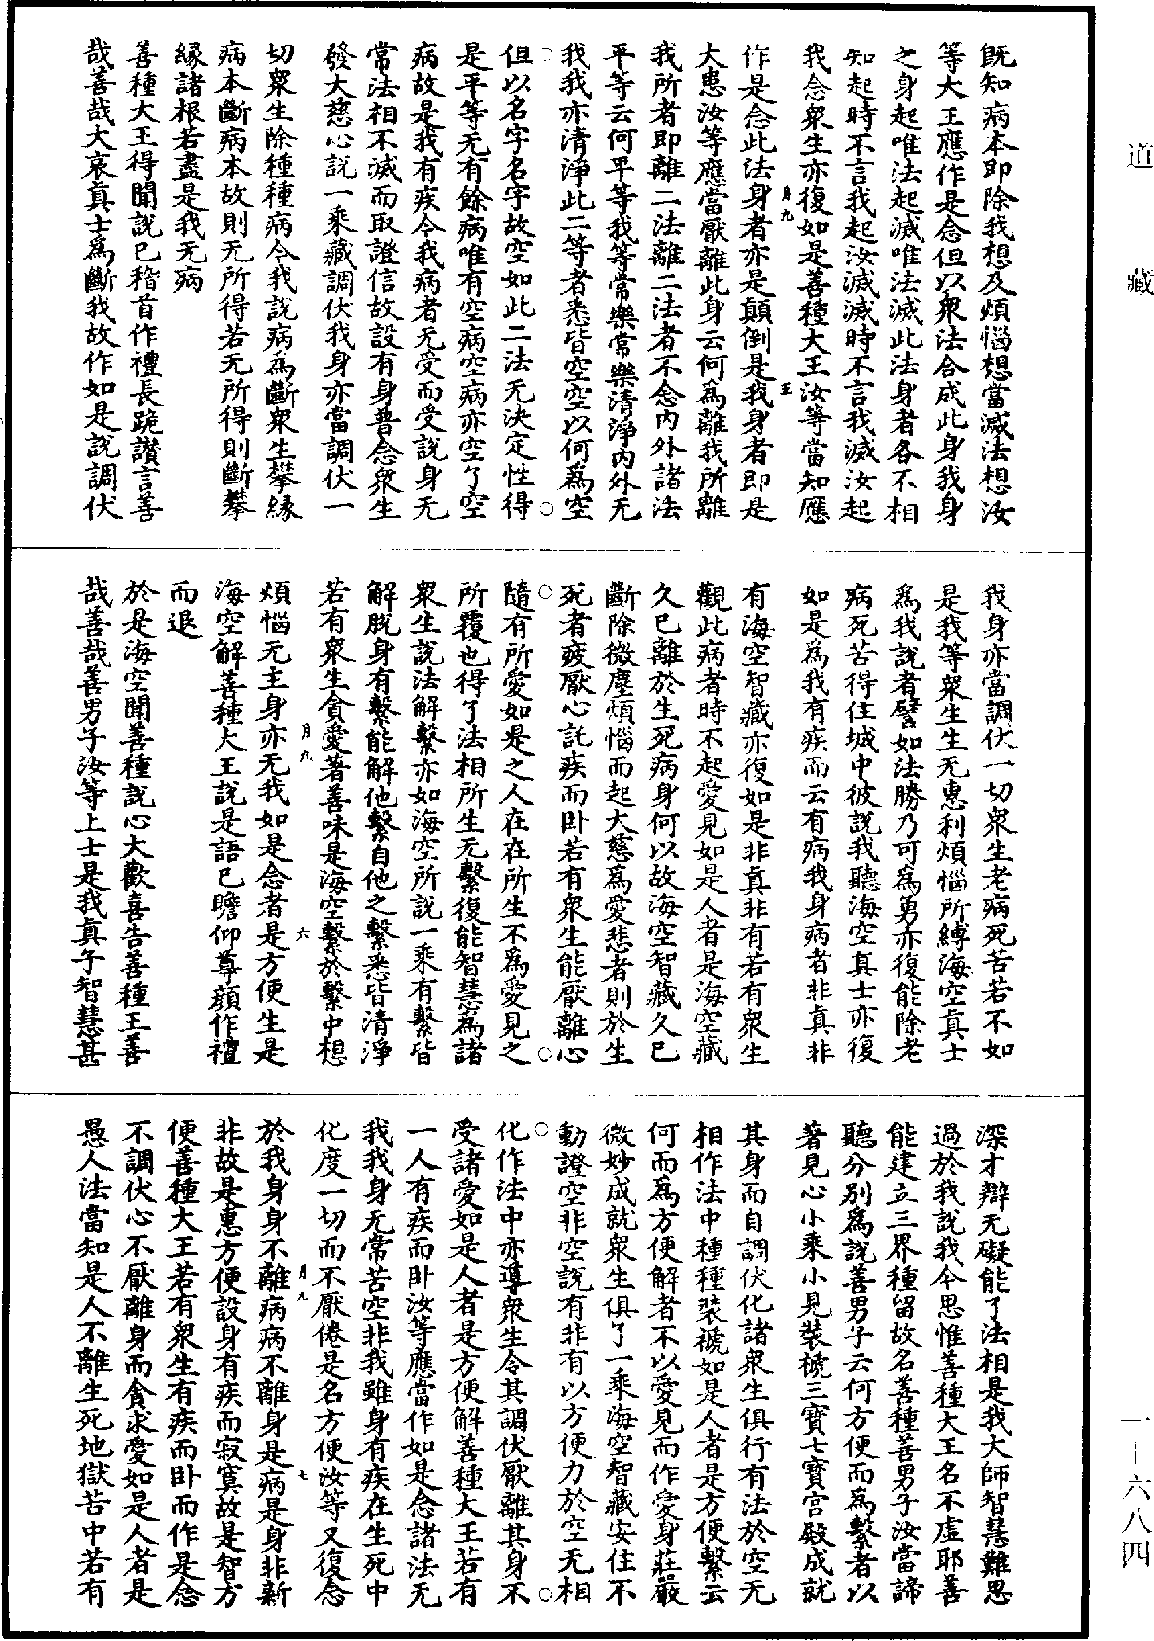 道藏
一－六八四
既知病本即除我想及煩惱想當滅法想汝
等大王應作是念但以衆法合成此身我身
之身起唯法起滅唯法滅此法身者各不相
知起時不言我起汝滅滅時不言我滅汝起
我念衆生亦復如是善種大王汝等當知應
月九
王
作是念此法身者亦是顛倒是我身者即是
大患汝等應當厭離此身云何爲離我所離
我所者即離二法離二法者不念内外諸法
平等云何平等我等常樂常樂清淨内外无
我我亦清淨此二等者悉皆空空以何爲空
但以名字名字故空如此二法无決定性得
是平等无有餘病唯有空病空病亦空了空
病故是我有疾今我病者无受而受說身无
常法相不滅而取證信故設有身普念衆生
發大慈心說一乘藏調伏我身亦當調伏一
切衆生除種種病今我說病爲斷衆生攀緣
病本斷病本故則无所得若无所得則斷攀
緣諸根若盡是我无病
善種大王得聞說已稽首作禮長跪讃言善
哉善哉大哀真士爲斷我故作如是說調伏
我身亦當調伏一切衆生老病死苦若不如
是我等衆生生无惠利煩惱所縛海空真士
爲我說者譬如法勝乃可爲勇亦復能除老
病死苦得住城中彼說我聽海空真士亦復
如是爲我有疾而云有病我身病者非真非
有海空智藏亦復如是非真非有若有衆生
觀此病者時不起愛見如是人者是海空藏
久已離於生死病身何以故海空智藏久已
斷除微塵煩惱而起大慈爲愛悲者則於生
死者疲厭心託疾而卧若有衆生能厭離心
隨有所愛如是之人在在所生不爲愛見之
所覆也得了法相所生无繫復能智慧爲諸
衆生說法解繫亦如海空所說一乘有繫皆
解脱身有繫能解他繫自他之繫悉皆清淨
若有衆生貪愛著善味是海空繫於繫中想
月九
六
煩惱无主身亦无我如是念者是方便生是
海空解善種大王說是語已瞻仰尊顔作禮
而退
於是海空聞善種說心大歡喜告善種王善
哉善哉善男子汝等上士是我真子智慧甚
深才辯无礙能了法相是我大師智慧難思
過於我說我今思惟善種大王名不虛耶善
能建立三界種留故名善種善男子汝當諦
聽分別爲說善男子云何方便而爲繫者以
著見心小乘小見裝㯫三寶七寶宮殿成就
其身而自調伏化諸衆生俱行有法於空无
相作法中種種裝褫如是人者是方便繫云
何而爲方便解者不以愛見而作愛身莊嚴
微妙成就衆生俱了一乘海空智藏安住不
動證空非空說有非有以方便力於空无相
化作法中亦導衆生令其調伏厭離其身不
受諸愛如是人者是方便解善種大王若有
一人有疾而卧汝等應當作如是念諸法无
我我身无常苦空非我雖身有疾在生死中
化度一切而不厭倦是名方便汝等又復念
月九
七
於我身身不離病病不離身是病是身非新
非故是惠方便設身有疾而寂寞故是智方
便善種大王若有衆生有疾而卧而作是念
不調伏心不厭離身而貪求愛如是人者是
愚人法當知是人不離生死地獄苦中若有